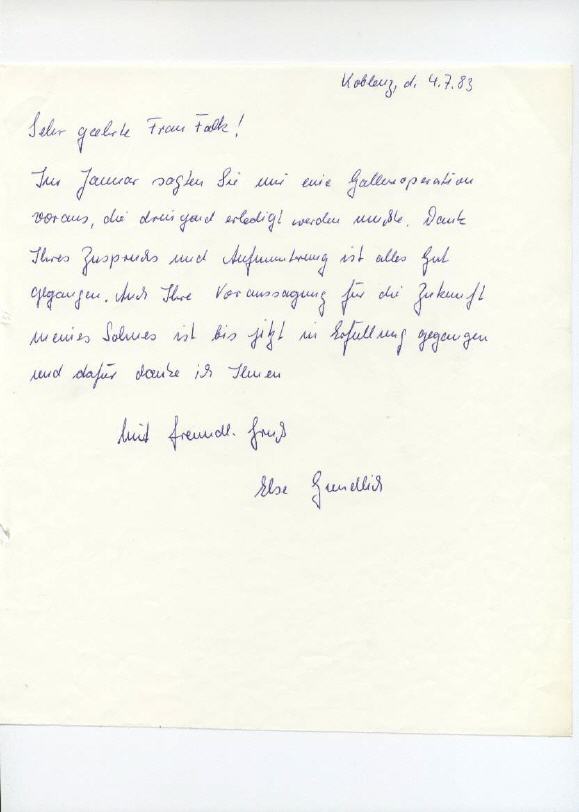 Koblenz, d. 4.7.83
Sehr geehrte Frau Falk!
Im Januar sagten Sie mir eine Gallenoperation
voraus, die dringend erledigt werden mußte. Dank
Ihres Zuspruchs und Aufmunterung ist alles gut
gegangen. Auch Ihre Voraussagung für die Zukunft
meines Sohnes ist bis jetzt in Erfüllung gegangen
und dafür danke ich Ihnen
Mit freundl. Gruß
Else